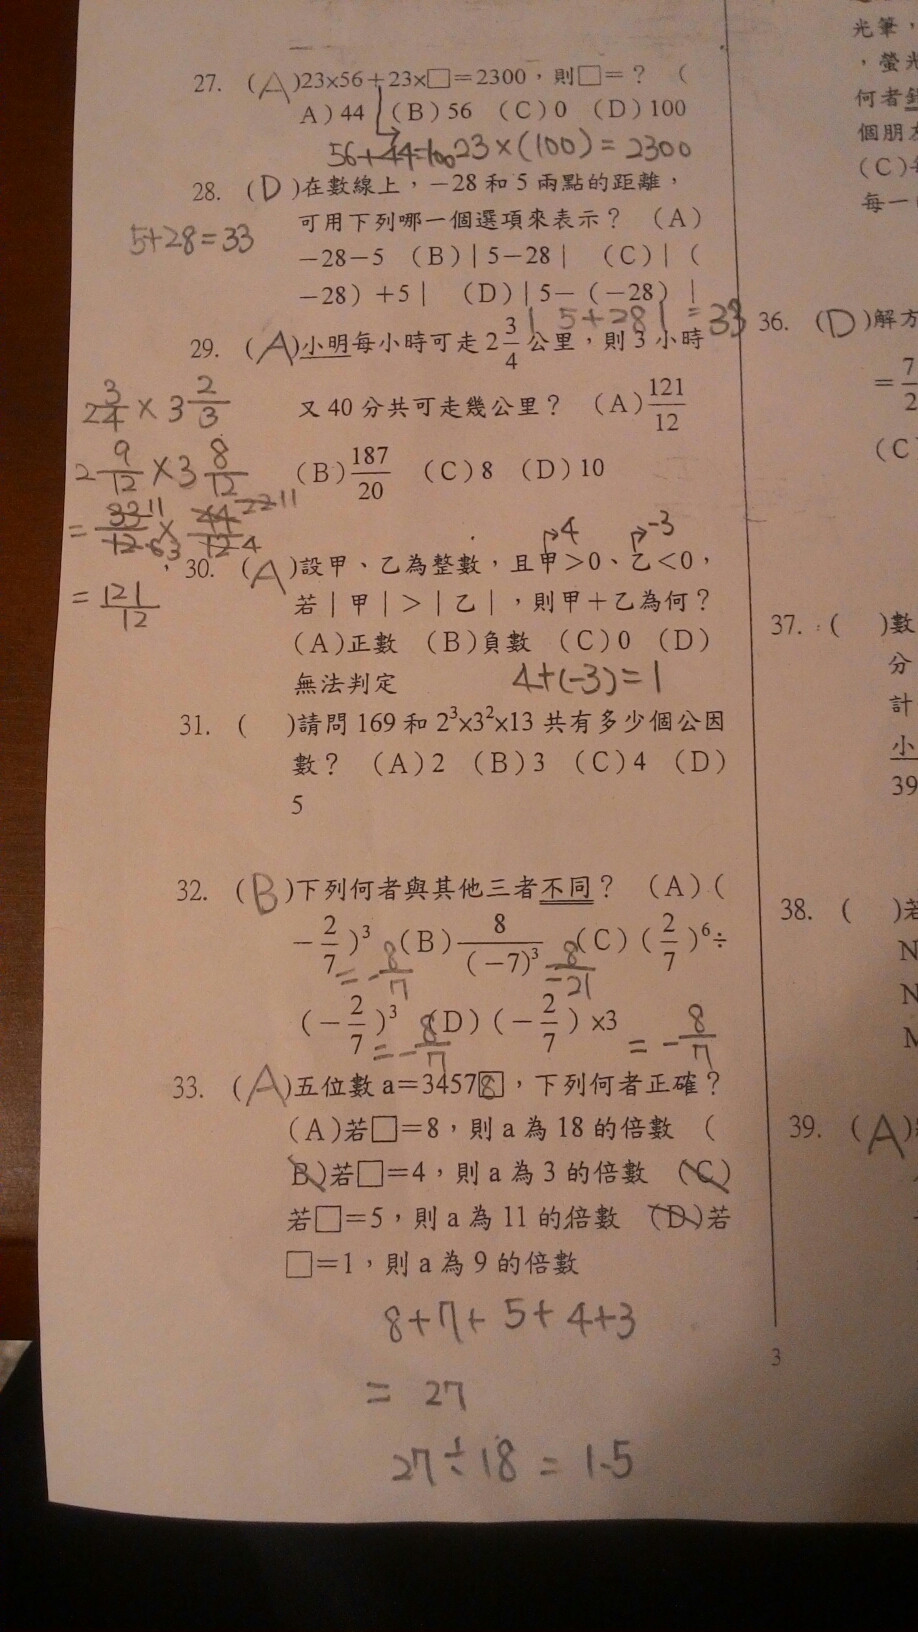 27. (A)23x56+23x□=2300，則□=？ (
A)44 (B)56 (C)0 (D)100
56+44=100 23×(100)=2300
28. (D)在數線上，−28和5兩點的距離，
可用下列哪一個選項來表示？ (A)
5+28=33
−28−5 (B)|5−28| (C)|(
−28)+5| (D)|5−(−28)|
|5+28|=33
29. (A)小明每小時可走2 3/4公里，則3小時
又40分共可走幾公里？ (A)121/12
(B)187/20 (C)8 (D)10
2 3/4 × 3 2/3
2 9/12 × 3 8/12
= 33/12 × 44/12
= 121/12
4 −3
30. (A)設甲、乙為整數，且甲>0、乙<0，
若|甲|>|乙|，則甲+乙為何？
(A)正數 (B)負數 (C)0 (D)
無法判定
4+(−3)=1
31. ( )請問169和2³x3²x13共有多少個公因
數？ (A)2 (B)3 (C)4 (D)
5
32. (B)下列何者與其他三者不同？ (A)(
−2/7)³ (B)8/(−7)³ (C)(2/7)⁶÷
=−8/7 =−8/21
(−2/7)³ (D)(−2/7)x3
=−8/7 =−8/7
33. (A)五位數a=3457□8，下列何者正確？
(A)若□=8，則a為18的倍數 (
B)若□=4，則a為3的倍數 (C)
若□=5，則a為11的倍數 (D)若
□=1，則a為9的倍數
8+7+5+4+3
=27
27÷18=1.5
3
光筆，
，螢光
何者
個朋友
(C)
每一
36. (D)解方
=7/2
(C
37. ( )數
分
計
小
39
38. ( )若
N
N
M
39. (A)